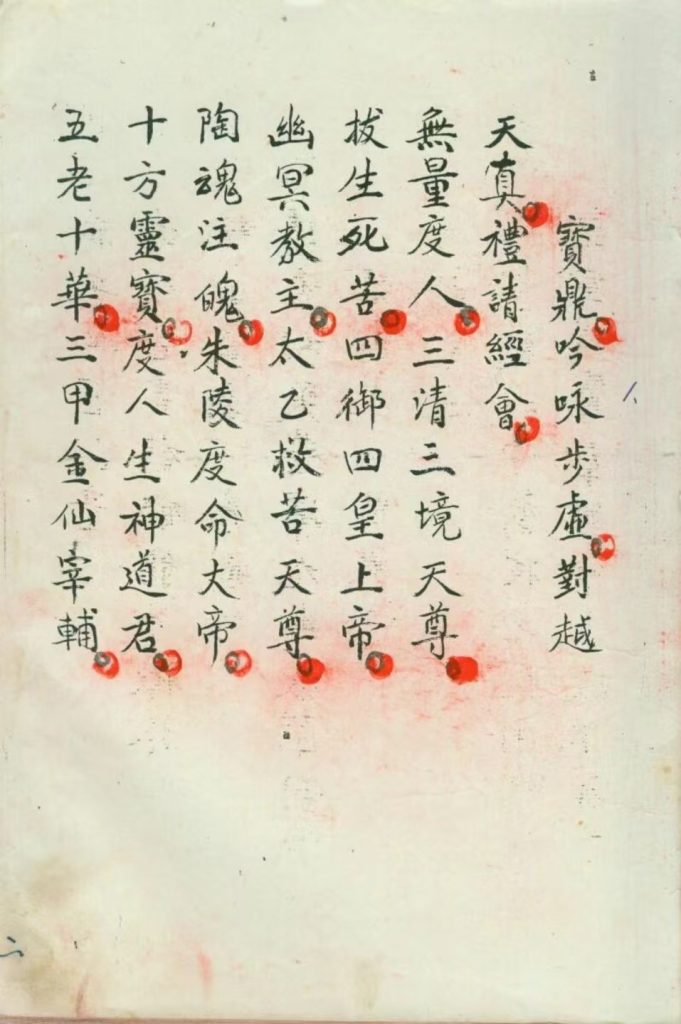 寶鼎吟咏步虛對越
天真禮請經會
無量度人三清三境天尊
拔生死苦四御四皇上帝
幽冥教主太乙救苦天尊
陶魂注魄朱陵度命大帝
十方靈寶度人生神道君
五老十華三甲金仙宰輔
二